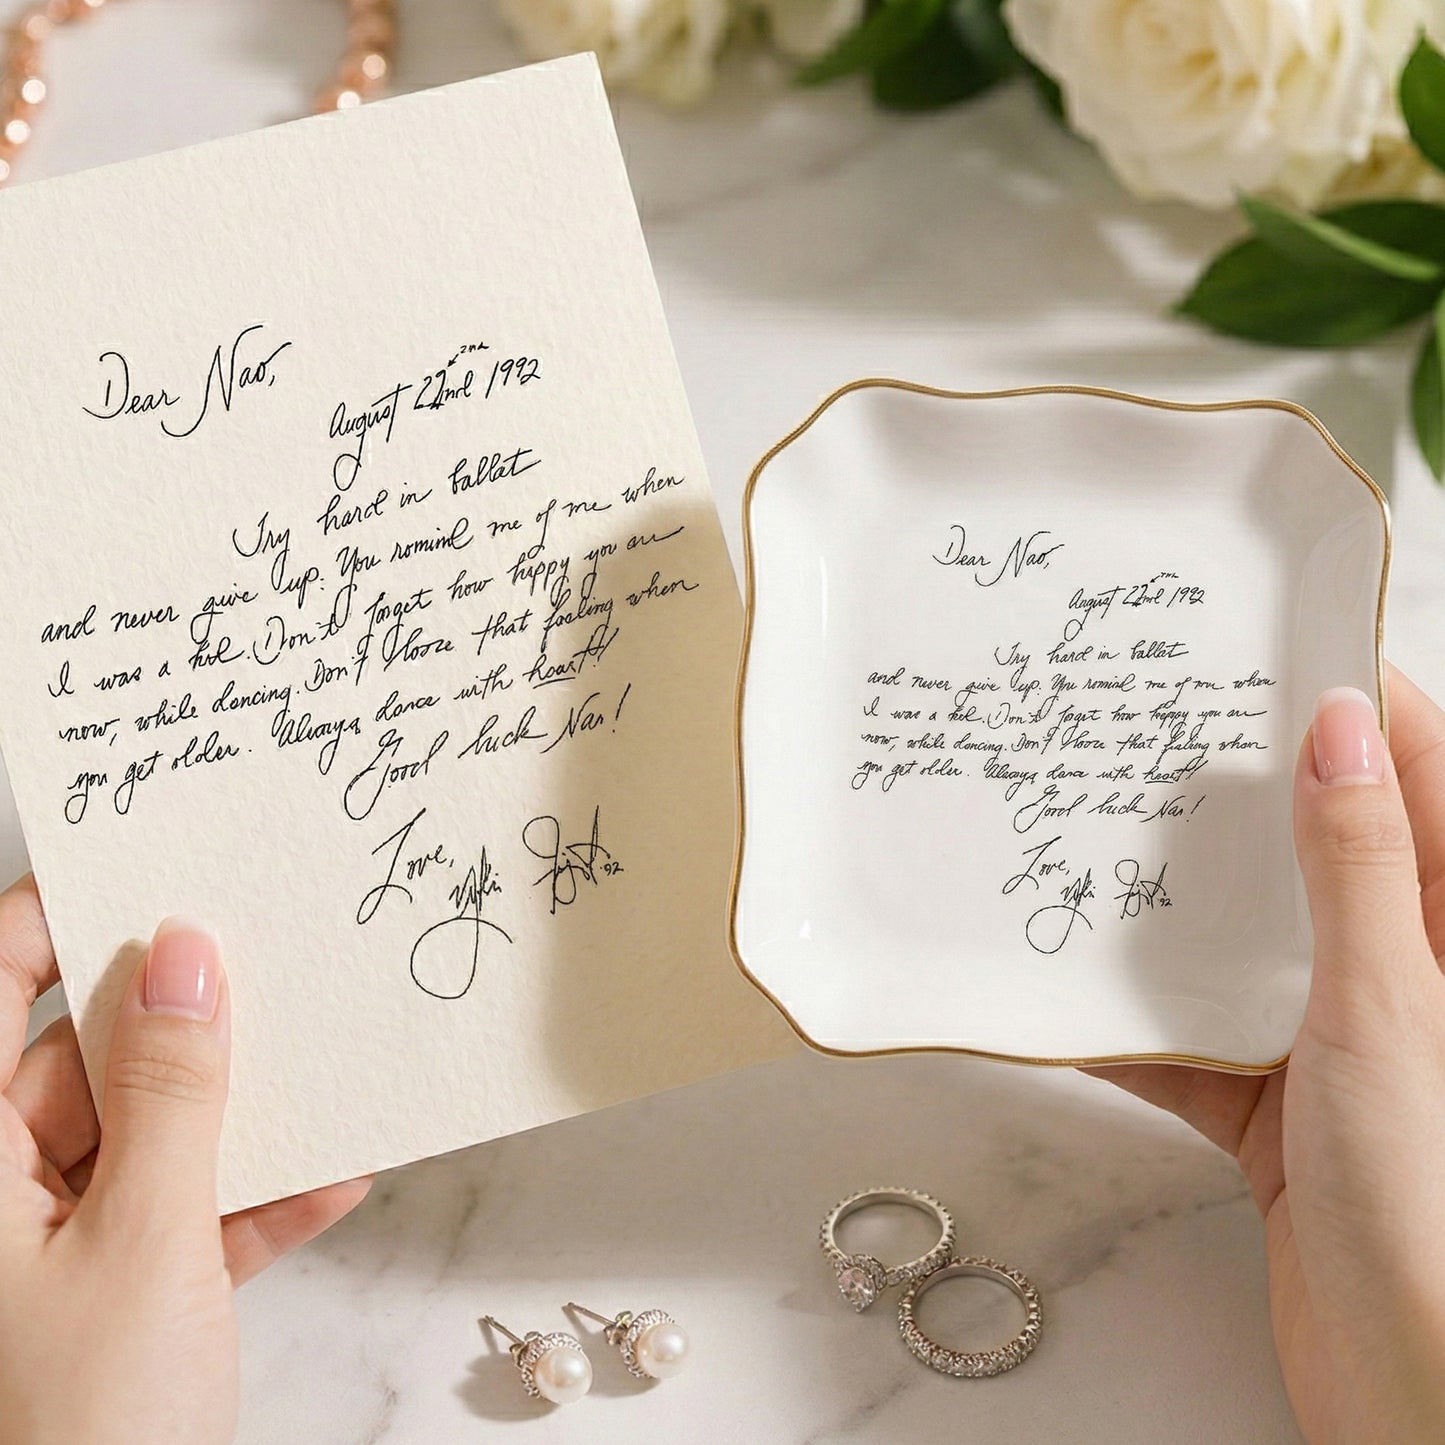 Dear Nao,
2nd
August 22nd 1992
Try hard in ballet
and never give up. You remind me of me when
I was a kid. Don't forget how happy you are
now, while dancing. Don't loose that feeling when
you get older. Always dance with heart!!
Good luck Nao!
Love,
'92
Dear Nao,
2nd
August 22nd 1992
Try hard in ballet
and never give up. You remind me of me when
I was a kid. Don't forget how happy you are
now, while dancing. Don't loose that feeling when
you get older. Always dance with heart!!
Good luck Nao!
Love,
'92